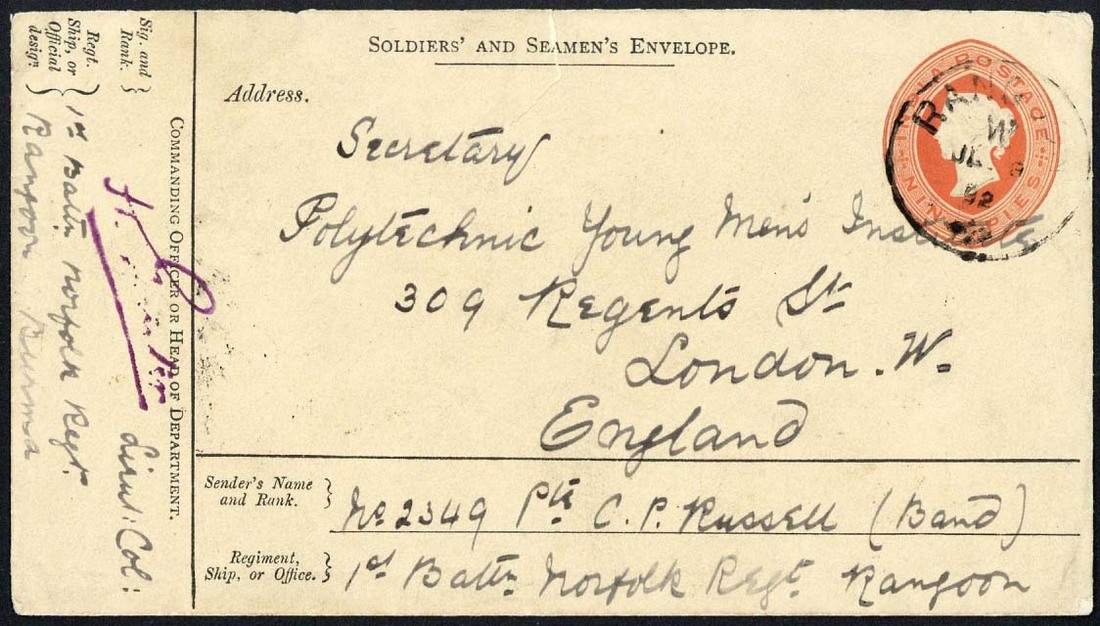 SOLDIERS' AND SEAMEN'S ENVELOPE.
Address.
Secretary
Polytechnic Young Men's Institute
309 Regents St
London. W.
England
Sender's Name and Rank. } No 2349 Pte C. P. Russell (Band)
Regiment, Ship, or Office. } 1st Battn Norfolk Regt. Rangoon
COMMANDING OFFICER OR HEAD OF DEPARTMENT.
Sig. and Rank. } Lieut: Col:
Regt. Ship, or Official design. } 1st Battn Norfolk Regt.
Rangoon Burma
INDIA POSTAGE
NINE PIES
RANG
W
92